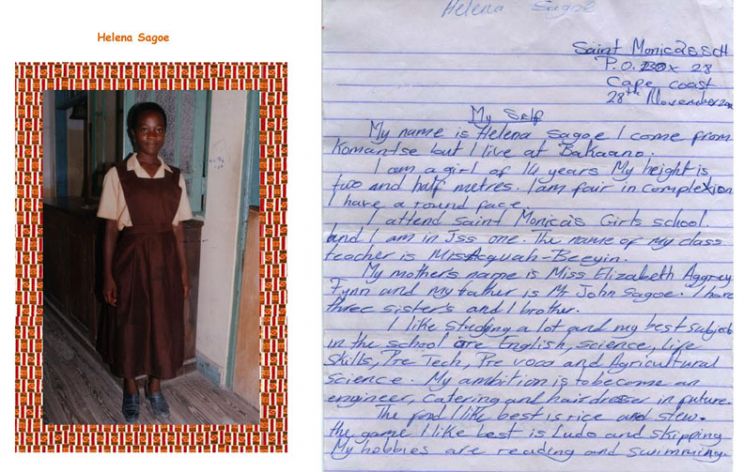 Helena Sagoe
Helena Sagoe
Saint Monica's SCH
P.O. Box 28
Cape coast
28th November
My Self
My name is Helena Sagoe I come from
Komantse but I live at Bakaano.
I am a girl of 14 years My height is
two and half metres. I am fair in complexion
I have a round face.
I attend saint Monica's Girls school.
and I am in Jss one. The name of my class
teacher is Miss Acquah-Beeyin.
My mother's name is Miss Elizabeth Aggrey
Fynn and my father is Mr John Sagoe. I have
three sister's and 1 brother.
I like studing a lot and my best subject
in the school are English, science, Life
Skills, Pre Tech, Pre voca and Agricultural
science. My ambition is to become an
engineer, catering and hairdresser in future.
The food I like best is rice and stew.
the game I like best is ludo and skipping
My hobbies are reading and swimming.